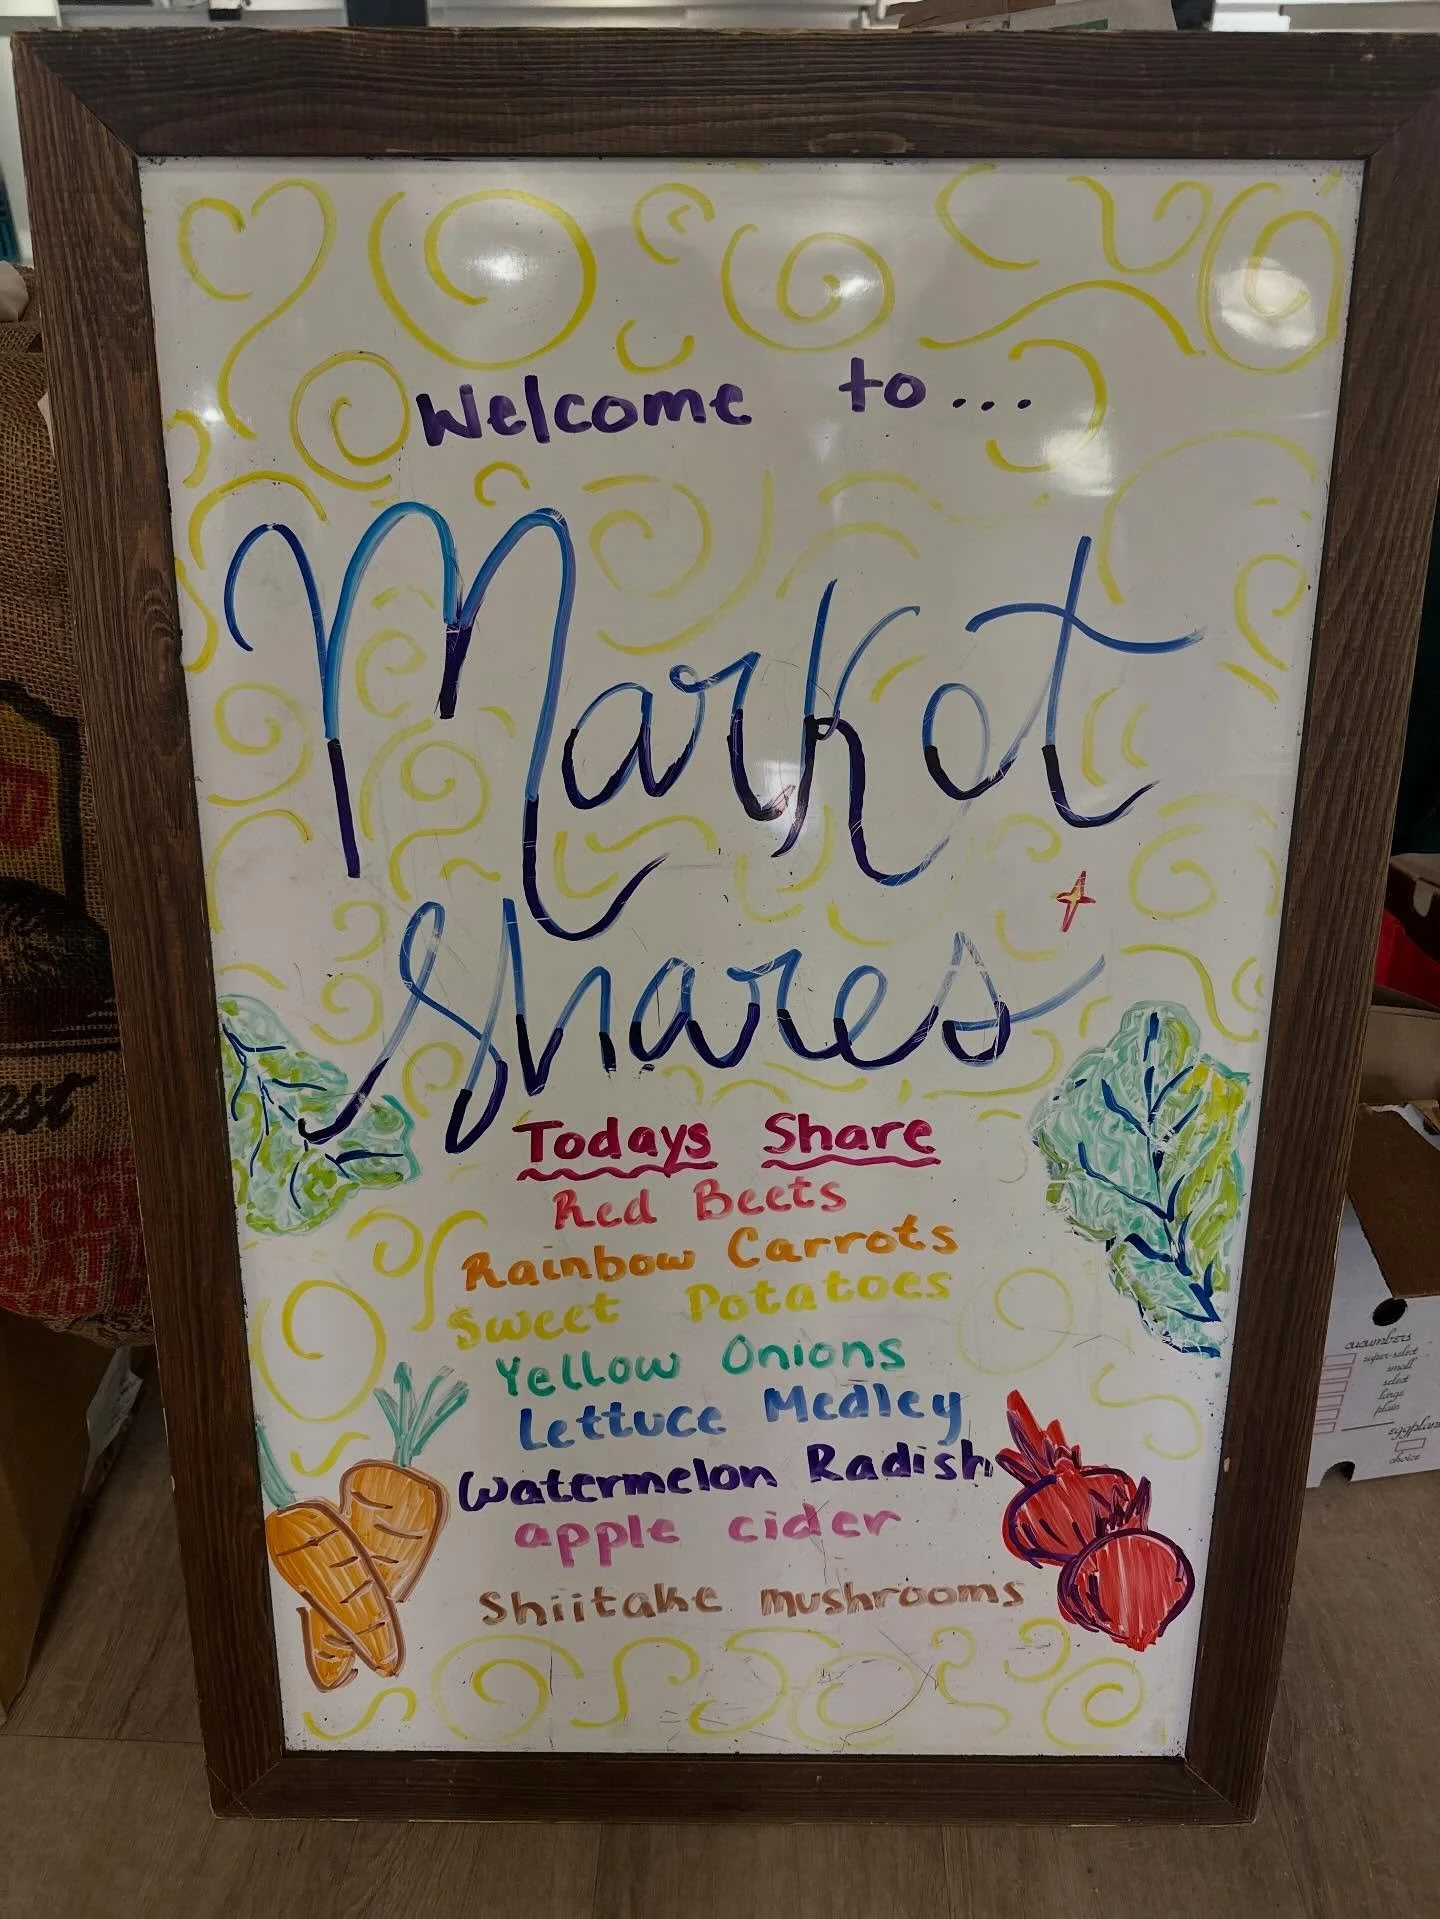 Welcome to...
Market
Shares
Todays Share
Red Beets
Rainbow Carrots
Sweet Potatoes
Yellow Onions
Lettuce Medley
Watermelon Radish
apple cider
Shiitake mushrooms
cucumbers
super-select
small
select
large
plain
choice